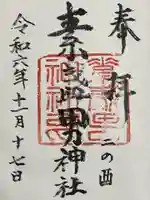 奉拝
二の酉
素盞雄神社
令和六年十一月十七日